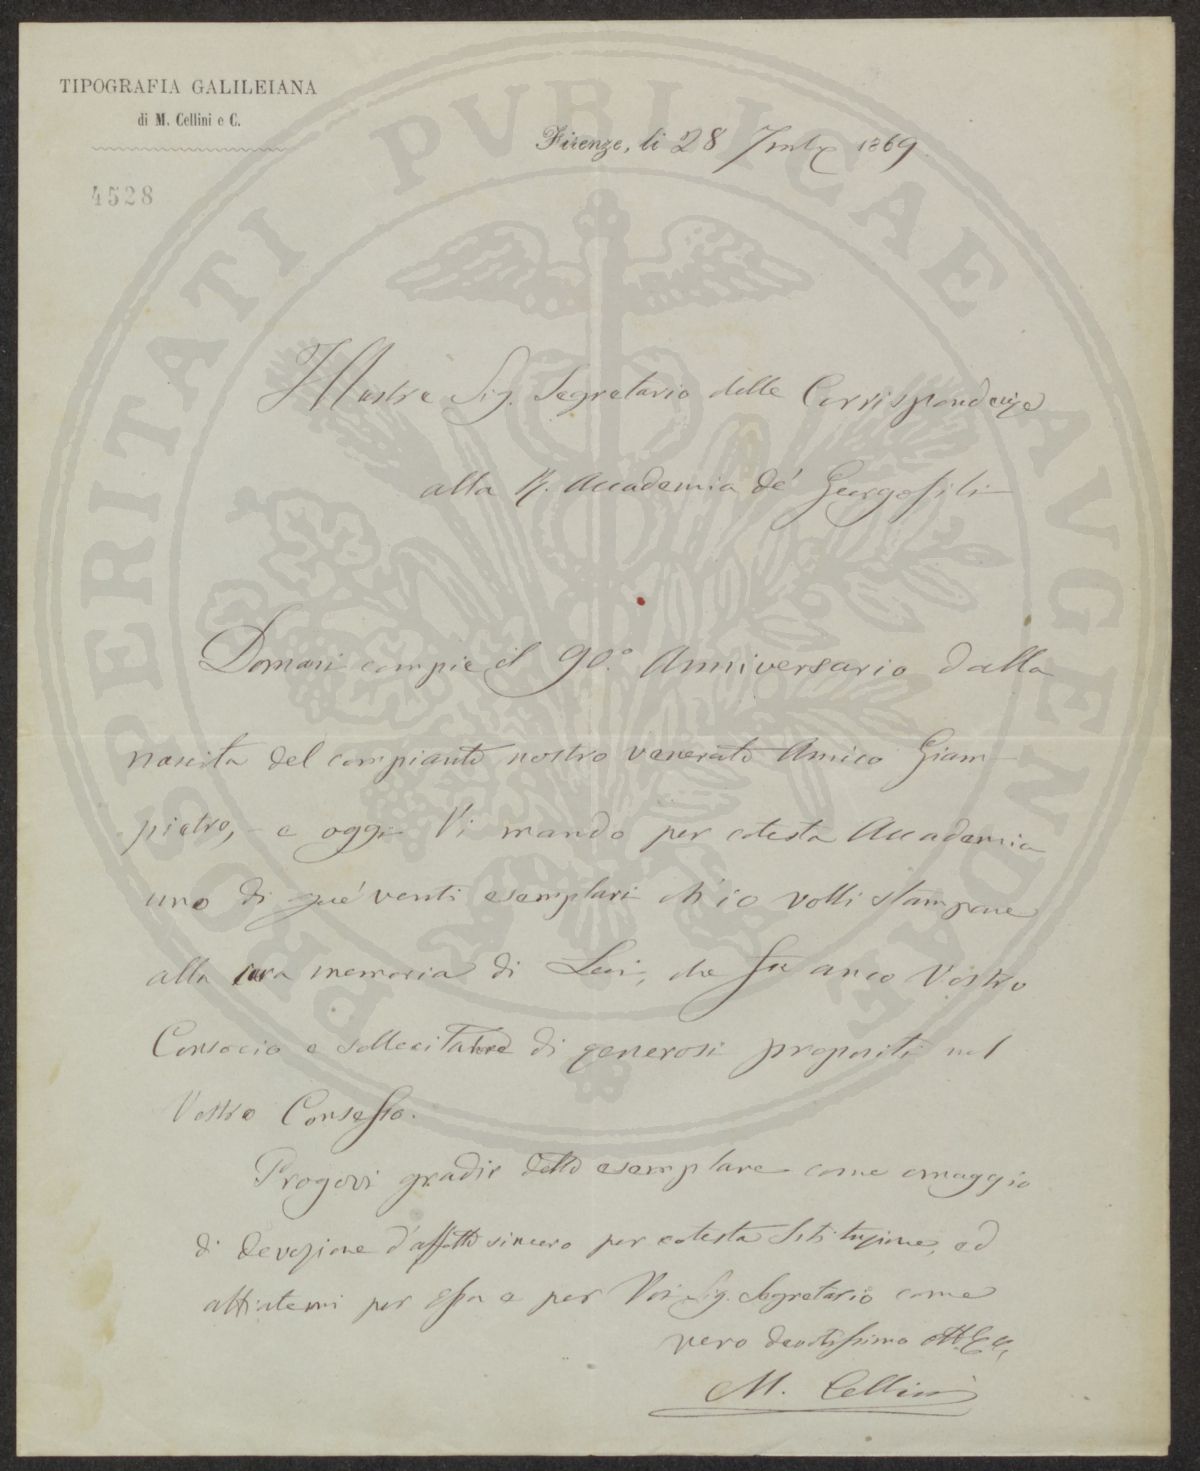 TIPOGRAFIA GALILEIANA
di M. Cellini e C.
4528
Firenze, li 28 7mbre 1869.
PROSPERITATI PVBLICAE AVGENDAE
Illustre Sig. Segretario delle Corrispondenze
alla R. Accademia de' Georgofili
Domani compie il 90.° Anniversario dalla
nascita del compianto nostro venerato Amico Giam-
pietro, - e oggi Vi mando per cotesta Accademia
uno di que' venti esemplari ch'io volli stampare
alla cara memoria di Lui, che fu anco Vostro
Consocio e sollecitatore di generosi propositi nel
Vostro Consesso.
Pregovi gradir detto esemplare come omaggio
di devozione d'affetto sincero per cotesta Istituzione, ed
abbiatemi per Essa e per Voi Sig. Segretario come
vero devotissimo
M. Cellini